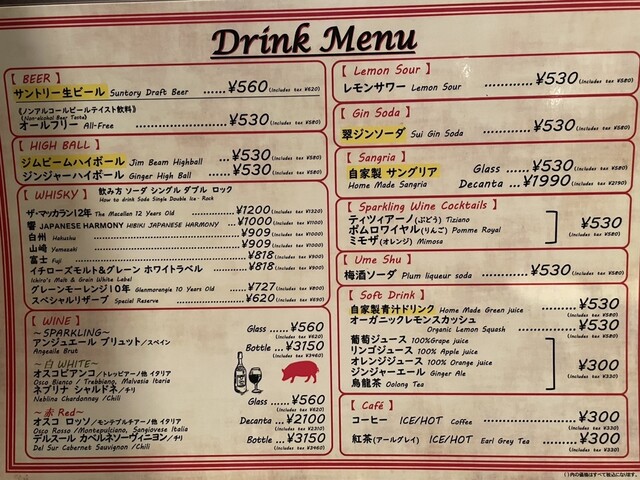 Drink Menu
【 BEER 】
サントリー生ビール Suntory Draft Beer ......¥560 (includes tax ¥620)
《ノンアルコールビールテイスト飲料》
(Non-alcohol Beer Taste)
オールフリー All-Free ......¥530 (includes tax ¥580)
【 HIGH BALL 】
ジムビームハイボール Jim Beam Highball ......¥530 (includes tax ¥580)
ジンジャーハイボール Ginger High Ball ......¥530 (includes tax ¥580)
【 WHISKY 】 飲み方 ソーダ シングル ダブル ロック
How to drink Soda Single Double Ice・Rock
ザ・マッカラン12年 The Macallan 12 Years Old ......¥1200 (includes tax ¥1320)
響 JAPANESE HARMONY HIBIKI JAPANESE HARMONY ......¥1000 (includes tax ¥1100)
白州 Hakushu ......¥909 (includes tax ¥1000)
山崎 Yamazaki ......¥909 (includes tax ¥1000)
富士 Fuji ......¥818 (includes tax ¥900)
イチローズモルト&グレーン ホワイトラベル ......¥818 (includes tax ¥900)
Ichiro's Malt & Grain White Label
グレーンモーレンジ10年 Glenmorangie 10 Years Old ......¥727 (includes tax ¥800)
スペシャルリザーブ Special Reserve ......¥620 (includes tax ¥690)
【 WINE 】
〜SPARKLING〜
アンジュエール ブリュット/スペイン
Angealle Brut
Glass ......¥560
(includes tax ¥620)
Bottle ...¥3150
(includes tax ¥3460)
〜白 WHITE〜
オスコビアンコ/トレッビアーノ他 イタリア
Osco Bianco / Trebbiano, Malvasia Itaria
ネブリナ シャルドネ/チリ
Neblina Chardonney /Chili
〜赤 Red〜
オスコ ロッソ/モンテプルチアーノ他 イタリア
Osco Rosso /Montepulciano, Sangiovese Italia
デルスール カベルネソーヴィニヨン/チリ
Del Sur Cabernet Sauvignon /Chili
Glass ......¥560
(includes tax ¥620)
Decanta ...¥2100
(includes tax ¥2310)
Bottle ...¥3150
(includes tax ¥3460)
【 Lemon Sour 】
レモンサワー Lemon Sour ......¥530 (includes tax ¥580)
【 Gin Soda 】
翠ジンソーダ Sui Gin Soda ......¥530 (includes tax ¥580)
【 Sangria 】
自家製 サングリア
Home Made Sangria
Glass ......¥530 (includes tax ¥580)
Decanta ...¥1990 (includes tax ¥2190)
【 Sparkling Wine Cocktails 】
ティツィアーノ(ぶどう) Tiziano
ポムロワイヤル(りんご) Pomme Royal
ミモザ(オレンジ) Mimosa
¥530
(includes tax ¥580)
【 Ume Shu 】
梅酒ソーダ Plum liqueur soda ......¥530 (includes tax ¥580)
【 Soft Drink 】
自家製青汁ドリンク Home Made Green juice ......¥530
(includes tax ¥580)
オーガニックレモンスカッシュ
Organic Lemon Squash ......¥530
(includes tax ¥580)
葡萄ジュース 100%Grape juice
リンゴジュース 100% Apple juice
オレンジジュース 100% Orange juice
ジンジャーエール Ginger Ale
烏龍茶 Oolong Tea
¥300
(includes tax ¥330)
【 Café 】
コーヒー ICE/HOT Coffee ......¥300
(includes tax ¥330)
紅茶(アールグレイ) ICE/HOT Earl Grey Tea ......¥300
(includes tax ¥330)
( )内の価格はすべて税込になります。